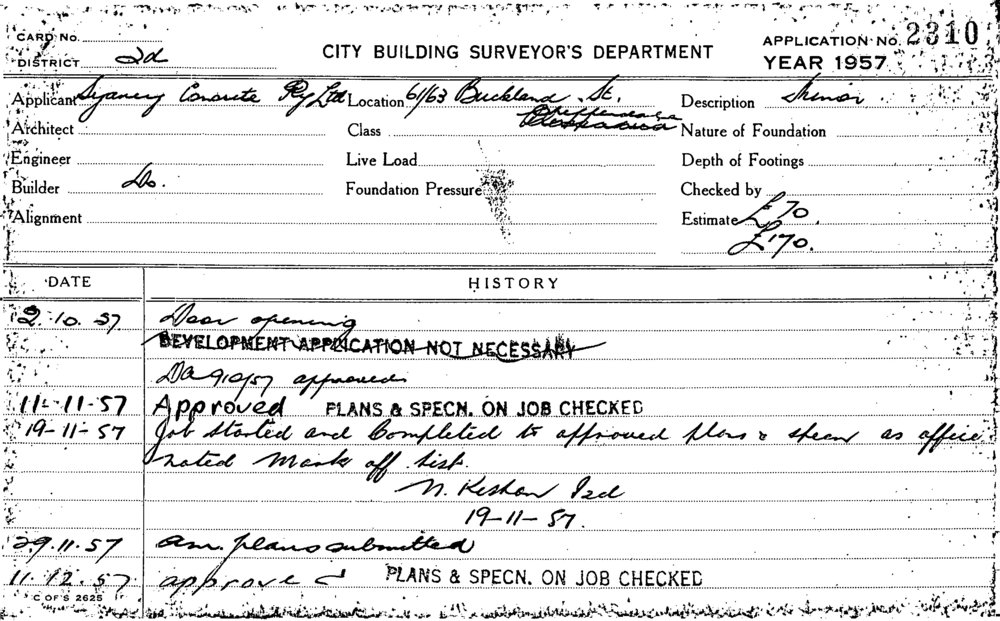 CARD No.
DISTRICT 2d
CITY BUILDING SURVEYOR'S DEPARTMENT
APPLICATION No. 2310
YEAR 1957
Applicant Sydney Concrete Pty Ltd Location 61/63 Buckland St. Description Minor
Chippendale
Architect Class Nature of Foundation
Engineer Live Load Depth of Footings
Builder Do. Foundation Pressure Checked by
Alignment Estimate £70.
£170.
DATE HISTORY
2.10.57 Door opening
DEVELOPMENT APPLICATION NOT NECESSARY
DA 9/10/57 approved
11-11-57 Approved PLANS & SPECN. ON JOB CHECKED
19-11-57 Job started and Completed to approved plans & specn as office
noted Mark off list.
19-11-57.
29.11.57 am. plans submitted
11.12.57 approved PLANS & SPECN. ON JOB CHECKED
C OF S 2625